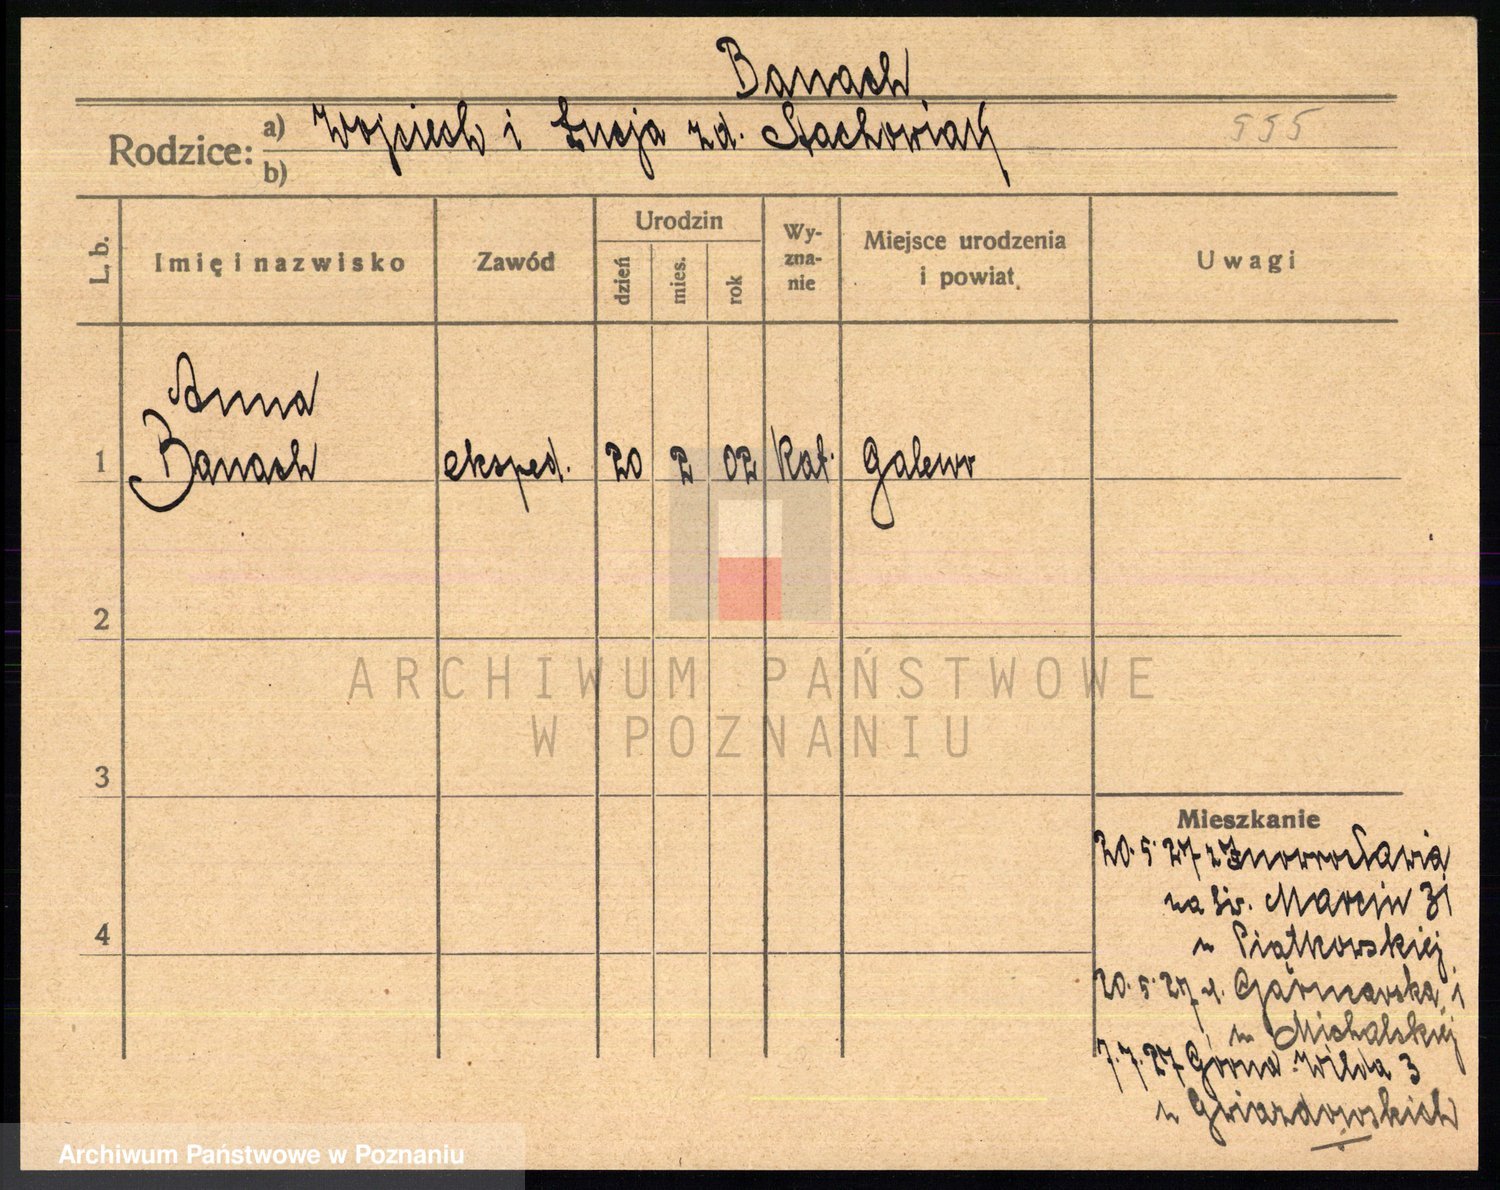 Banach
Rodzice: a) Wojciech i Łucja zd. Stachowiak
b)
555
L. b.
Imię i nazwisko
Zawód
Urodzin
dzień
mies.
rok
Wy-
zna-
nie
Miejsce urodzenia
i powiat.
Uwagi
Anna
1 Banach eksped. 20 2 02 kat. Galewo
2
ARCHIWUM PAŃSTWOWE
W POZNANIU
3
Mieszkanie
20.5.27 z Inowrocławia
na św. Marcin 31
u Piątkowskiej
4
20.5.27 ul. 1
u Michalskiej
7.7.27 Górna Wilda 3
u Gwiazdowskich
Archiwum Państwowe w Poznaniu